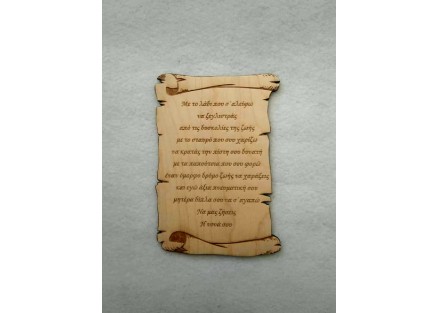 Με το λάδι που σ' αλείφω
να ξεγλιστράς
από τις δυσκολίες της ζωής
με το σταυρό που σου χαρίζω
να κρατάς την πίστη σου δυνατή
με τα παπούτσια που σου φοράω
έναν όμορφο δρόμο ζωής να χαράξεις
και εγώ άξια πνευματική σου
μητέρα δίπλα σου να σ' αγαπώ
Να μας ζήσεις
Η νονά σου